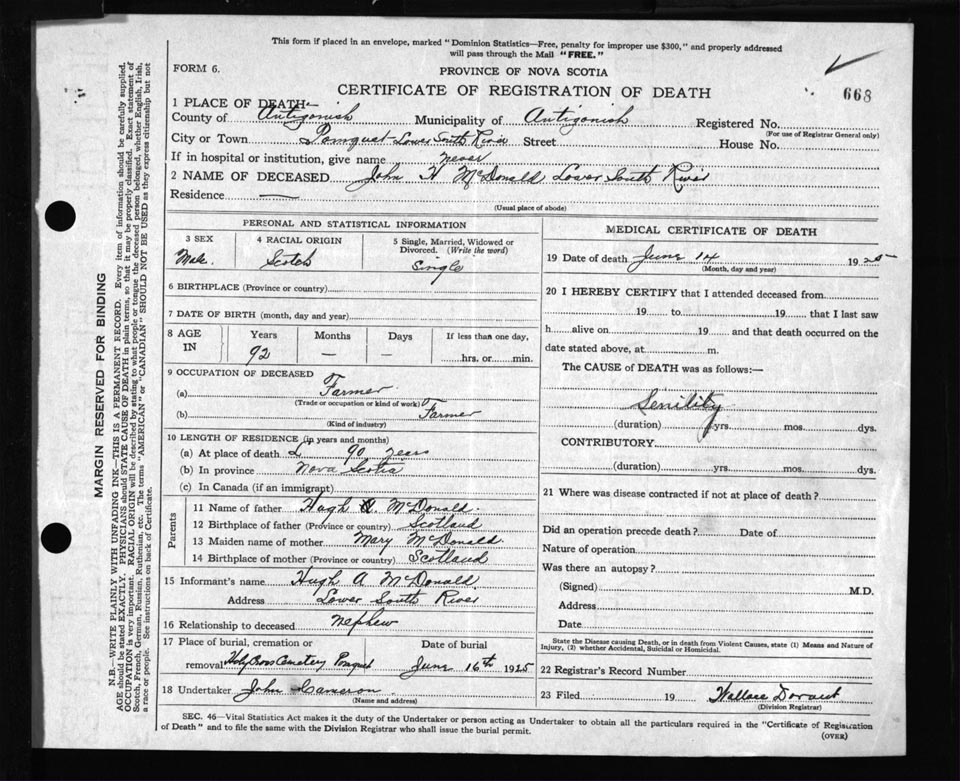 This form if placed in an envelope, marked "Dominion Statistics—Free, penalty for improper use $300," and properly addressed
will pass through the Mail "FREE."
FORM 6.
PROVINCE OF NOVA SCOTIA
CERTIFICATE OF REGISTRATION OF DEATH
668
1 PLACE OF DEATH—
County of Antigonish Municipality of Antigonish Registered No.
(For use of Registrar General only)
City or Town Pomquet Lower South River Street House No.
If in hospital or institution, give name never
2 NAME OF DECEASED John H McDonald Lower South River
Residence —
(Usual place of abode)
PERSONAL AND STATISTICAL INFORMATION
3 SEX
Male.
4 RACIAL ORIGIN
Scotch
5 Single, Married, Widowed or
Divorced. (Write the word)
Single
6 BIRTHPLACE (Province or country)
7 DATE OF BIRTH (month, day and year)
8 AGE
IN
Years
92
Months
—
Days
—
If less than one day,
hrs. or min.
9 OCCUPATION OF DECEASED
(a) Farmer
(Trade or occupation or kind of work)
(b) Farmer
(Kind of industry)
10 LENGTH OF RESIDENCE (in years and months)
(a) At place of death 90 years
(b) In province Nova Scotia
(c) In Canada (if an immigrant)
Parents
11 Name of father Hugh McDonald.
12 Birthplace of father (Province or country) Scotland
13 Maiden name of mother Mary McDonald.
14 Birthplace of mother (Province or country) Scotland
15 Informant's name Hugh A McDonald.
Address Lower South River
16 Relationship to deceased nephew
17 Place of burial, cremation or Date of burial
removal Holy Cross Cemetery Pomquet June 16th 1925
18 Undertaker John Cameron
(Name and address)
MEDICAL CERTIFICATE OF DEATH
19 Date of death June 14 1925
(Month, day and year)
20 I HEREBY CERTIFY that I attended deceased from
19 to 19 that I last saw
h alive on 19 and that death occurred on the
date stated above, at m.
The CAUSE of DEATH was as follows:—
Senility
(duration) yrs. mos. dys.
CONTRIBUTORY
(duration) yrs. mos. dys.
21 Where was disease contracted if not at place of death?
Did an operation precede death? Date of
Nature of operation
Was there an autopsy?
(Signed) M.D.
Address
Date
State the Disease causing Death, or in death from Violent Causes, state (1) Means and Nature of
Injury, (2) whether Accidental, Suicidal or Homicidal.
22 Registrar's Record Number
23 Filed 19 Wallace
(Division Registrar)
SEC. 46—Vital Statistics Act makes it the duty of the Undertaker or person acting as Undertaker to obtain all the particulars required in the "Certificate of Registration
of Death" and to file the same with the Division Registrar who shall issue the burial permit.
(OVER)
MARGIN RESERVED FOR BINDING
N.B.—WRITE PLAINLY WITH UNFADING INK—THIS IS A PERMANENT RECORD. Every item of information should be carefully supplied.
AGE should be stated EXACTLY. PHYSICIANS should STATE CAUSE OF DEATH in plain terms, so that it may be properly classified. Exact statement of
OCCUPATION is very important. RACIAL ORIGIN will be described by stating to what people or tongue the deceased person belonged, whether English, Irish,
Scotch, French, German, Russian, Ruthenian, etc. The terms "AMERICAN" or "CANADIAN" SHOULD NOT BE USED as they express citizenship but not
a race or people. See instructions on back of Certificate.